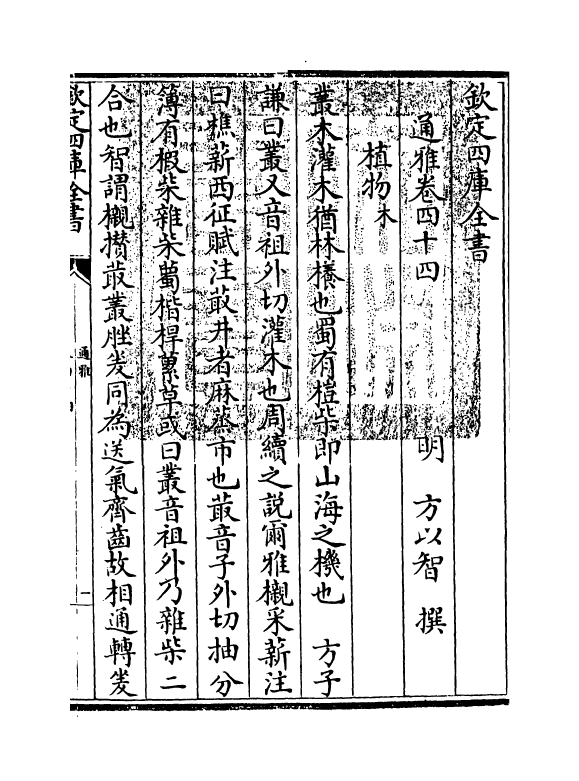 欽定四庫全書
通雅卷四十四　明　方以智　撰
植物木
叢木灌木猶林欑也蜀有榿柴即山海之機也　方子
謙曰叢又音祖外切灌木也周續之説爾雅櫬采薪注
曰樵薪西征賦注菆井者麻蒸市也菆音子外切抽分
簿有椴柴雜柴蔔楷桿藳草或曰叢音祖外乃雜柴二
合也智謂櫬攢菆叢脞㚇同為送氣齊齒故相通轉㚇
欽定四庫全書
通雅
一